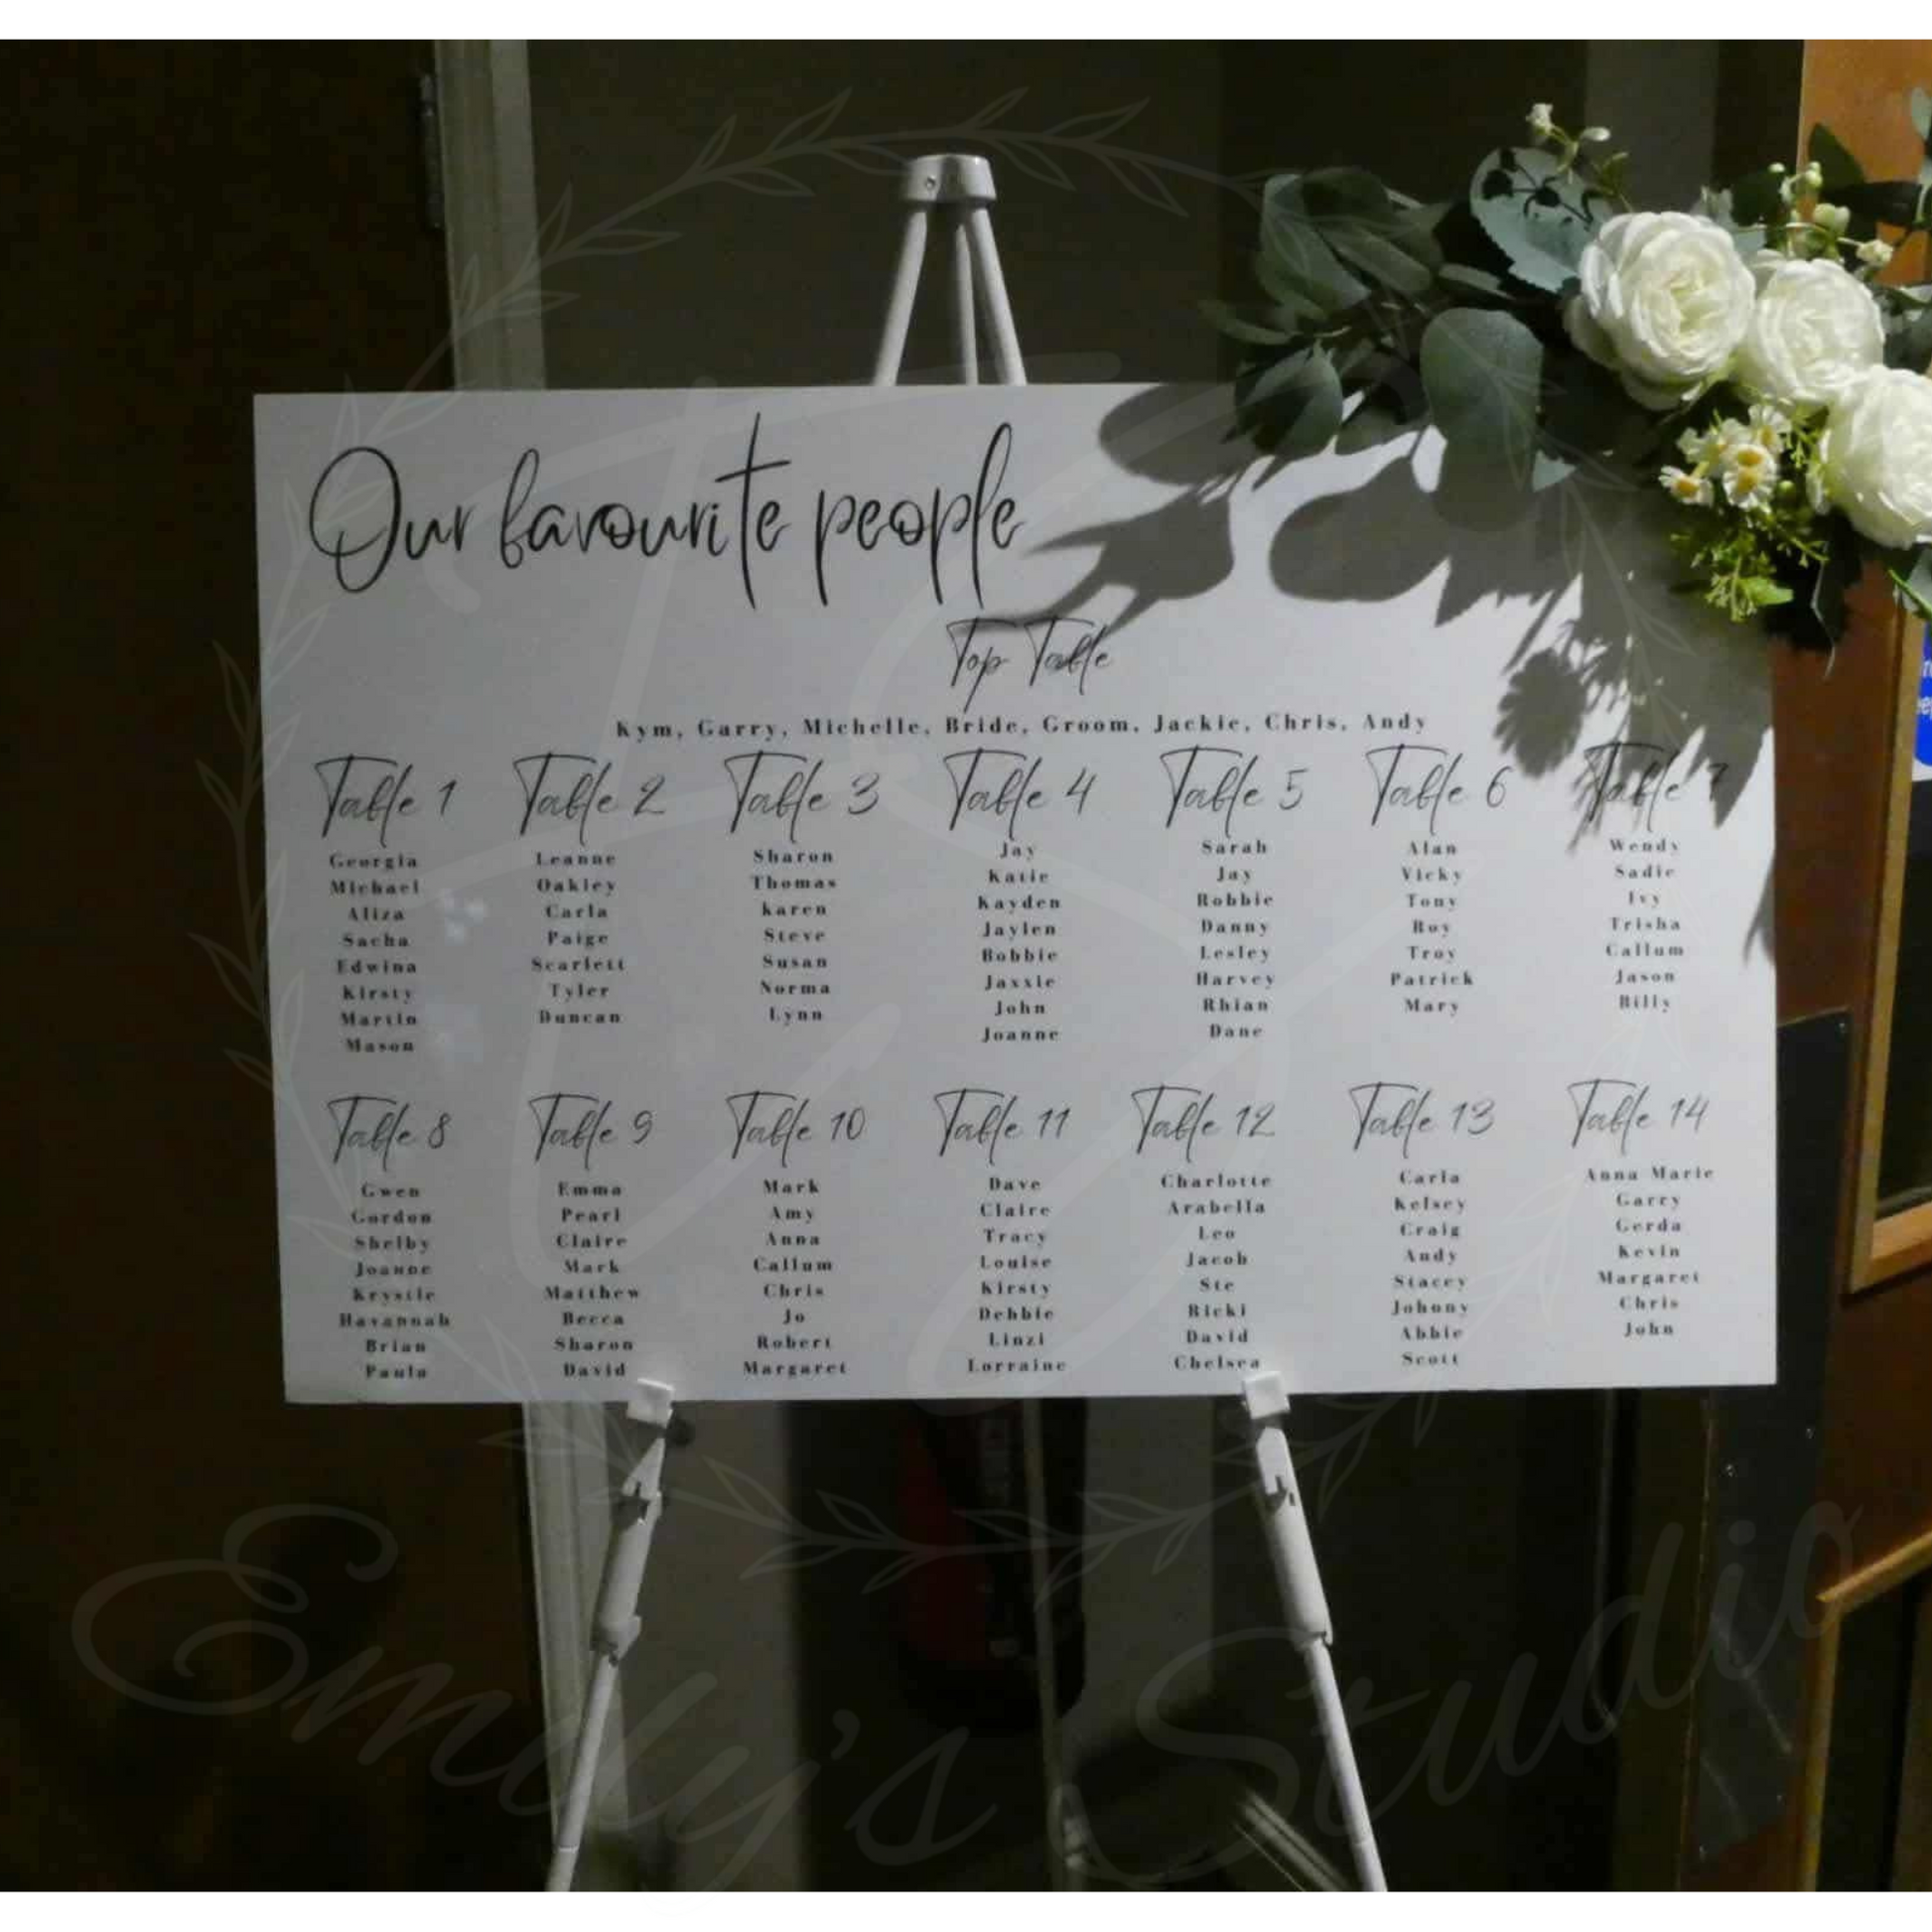 Our favourite people
Top Table
Kym, Garry, Michelle, Bride, Groom, Jackie, Chris, Andy
Table 1
Georgia
Michael
Aliza
Sacha
Edwina
Kirsty
Martin
Mason
Table 2
Leanne
Oakley
Carla
Paige
Scarlett
Tyler
Duncan
Table 3
Sharon
Thomas
Karen
Steve
Susan
Norma
Lynn
Table 4
Jay
Katie
Kayden
Jaylen
Bobbie
Jaxxie
John
Joanne
Table 5
Sarah
Jay
Robbie
Danny
Lesley
Harvey
Rhian
Dane
Table 6
Alan
Vicky
Tony
Roy
Troy
Patrick
Mary
Table 7
Wendy
Sadie
Ivy
Trisha
Callum
Jason
Billy
Table 8
Gwen
Gordon
Shelby
Joanne
Krystie
Havannah
Brian
Paula
Table 9
Emma
Pearl
Claire
Mark
Matthew
Becca
Sharon
David
Table 10
Mark
Amy
Anna
Callum
Chris
Jo
Robert
Margaret
Table 11
Dave
Claire
Tracy
Louise
Kirsty
Debbie
Linzi
Lorraine
Table 12
Charlotte
Arabella
Leo
Jacob
Ste
Ricki
David
Chelsea
Table 13
Carla
Kelsey
Craig
Andy
Stacey
Johnny
Abbie
Scott
Table 14
Anna Marie
Garry
Gerda
Kevin
Margaret
Chris
John
Emdy's Studio